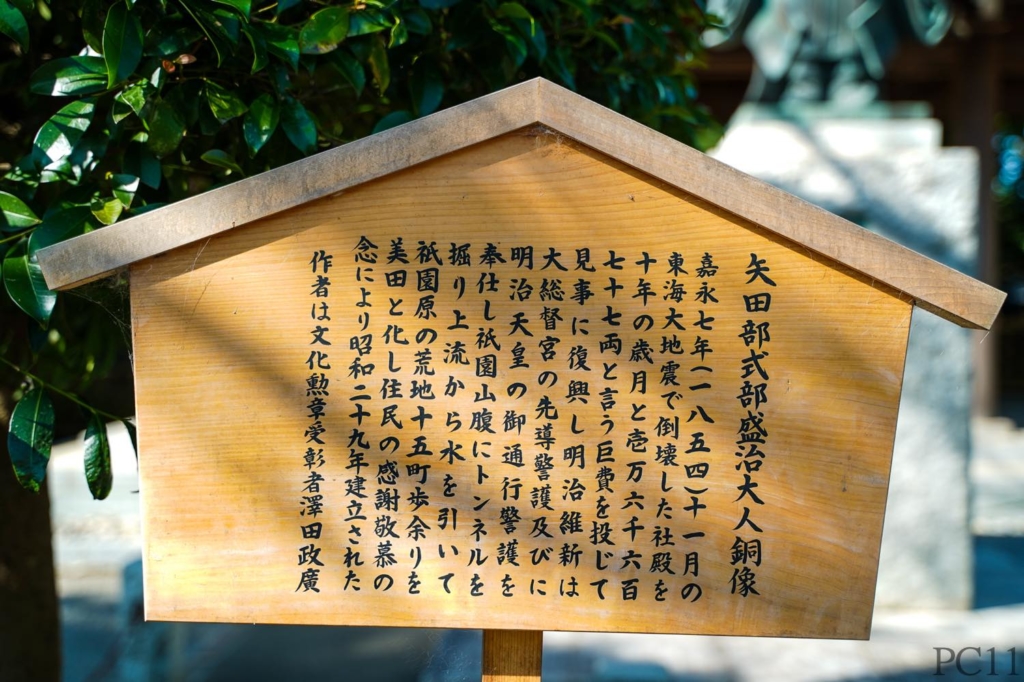 矢田部式部盛治大人銅像
嘉永七年(一八五四)十一月の
東海大地震で倒壊した社殿を
十年の歳月と壱万六千六百
七十七両と言う巨費を投じて
見事に復興し明治維新は
大総督宮の先導警護及びに
明治天皇の御通行警護を
奉仕し祇園山腹にトンネルを
掘り上流から水を引いて
祇園原の荒地十五町歩余りを
美田と化し住民の感謝敬慕の
念により昭和二十九年建立された
作者は文化勲章受彰者澤田政廣
PC11